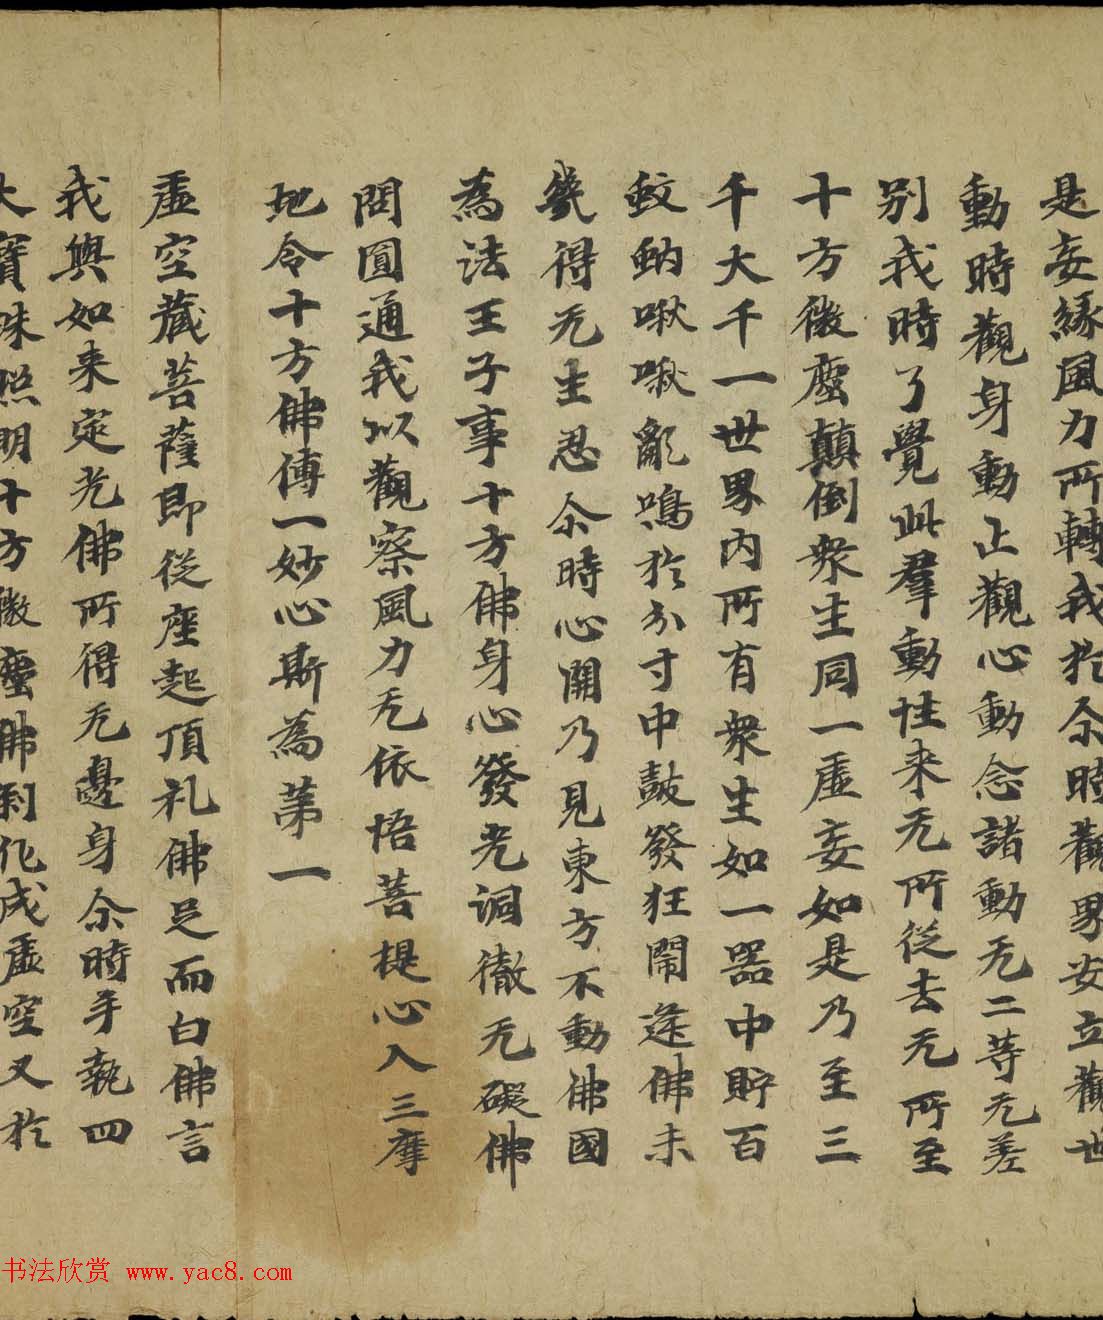 是妄緣風力所轉我於尒時觀界安立觀世
動時觀身動止觀心動念諸動无二等无差
別我時了覺此羣動性来无所從去无所至
十方微塵顛倒衆生同一虛妄如是乃至三
千大千一世界內所有衆生如一器中貯百
蚊蚋啾啾亂鳴於分寸中鼓發狂鬧逢佛未
幾得无生忍尒時心開乃見東方不動佛國
為法王子事十方佛身心發光洞徹无礙佛
問圓通我以觀察風力无依悟菩提心入三摩
地令十方佛傳一妙心斯為苐一
虛空藏菩薩即從座起頂礼佛足而白佛言
我與如来定光佛所得无邊身尒時手執四
大寶珠照明十方微塵佛剎化成虛空又於
书法欣赏 www.yac8.com